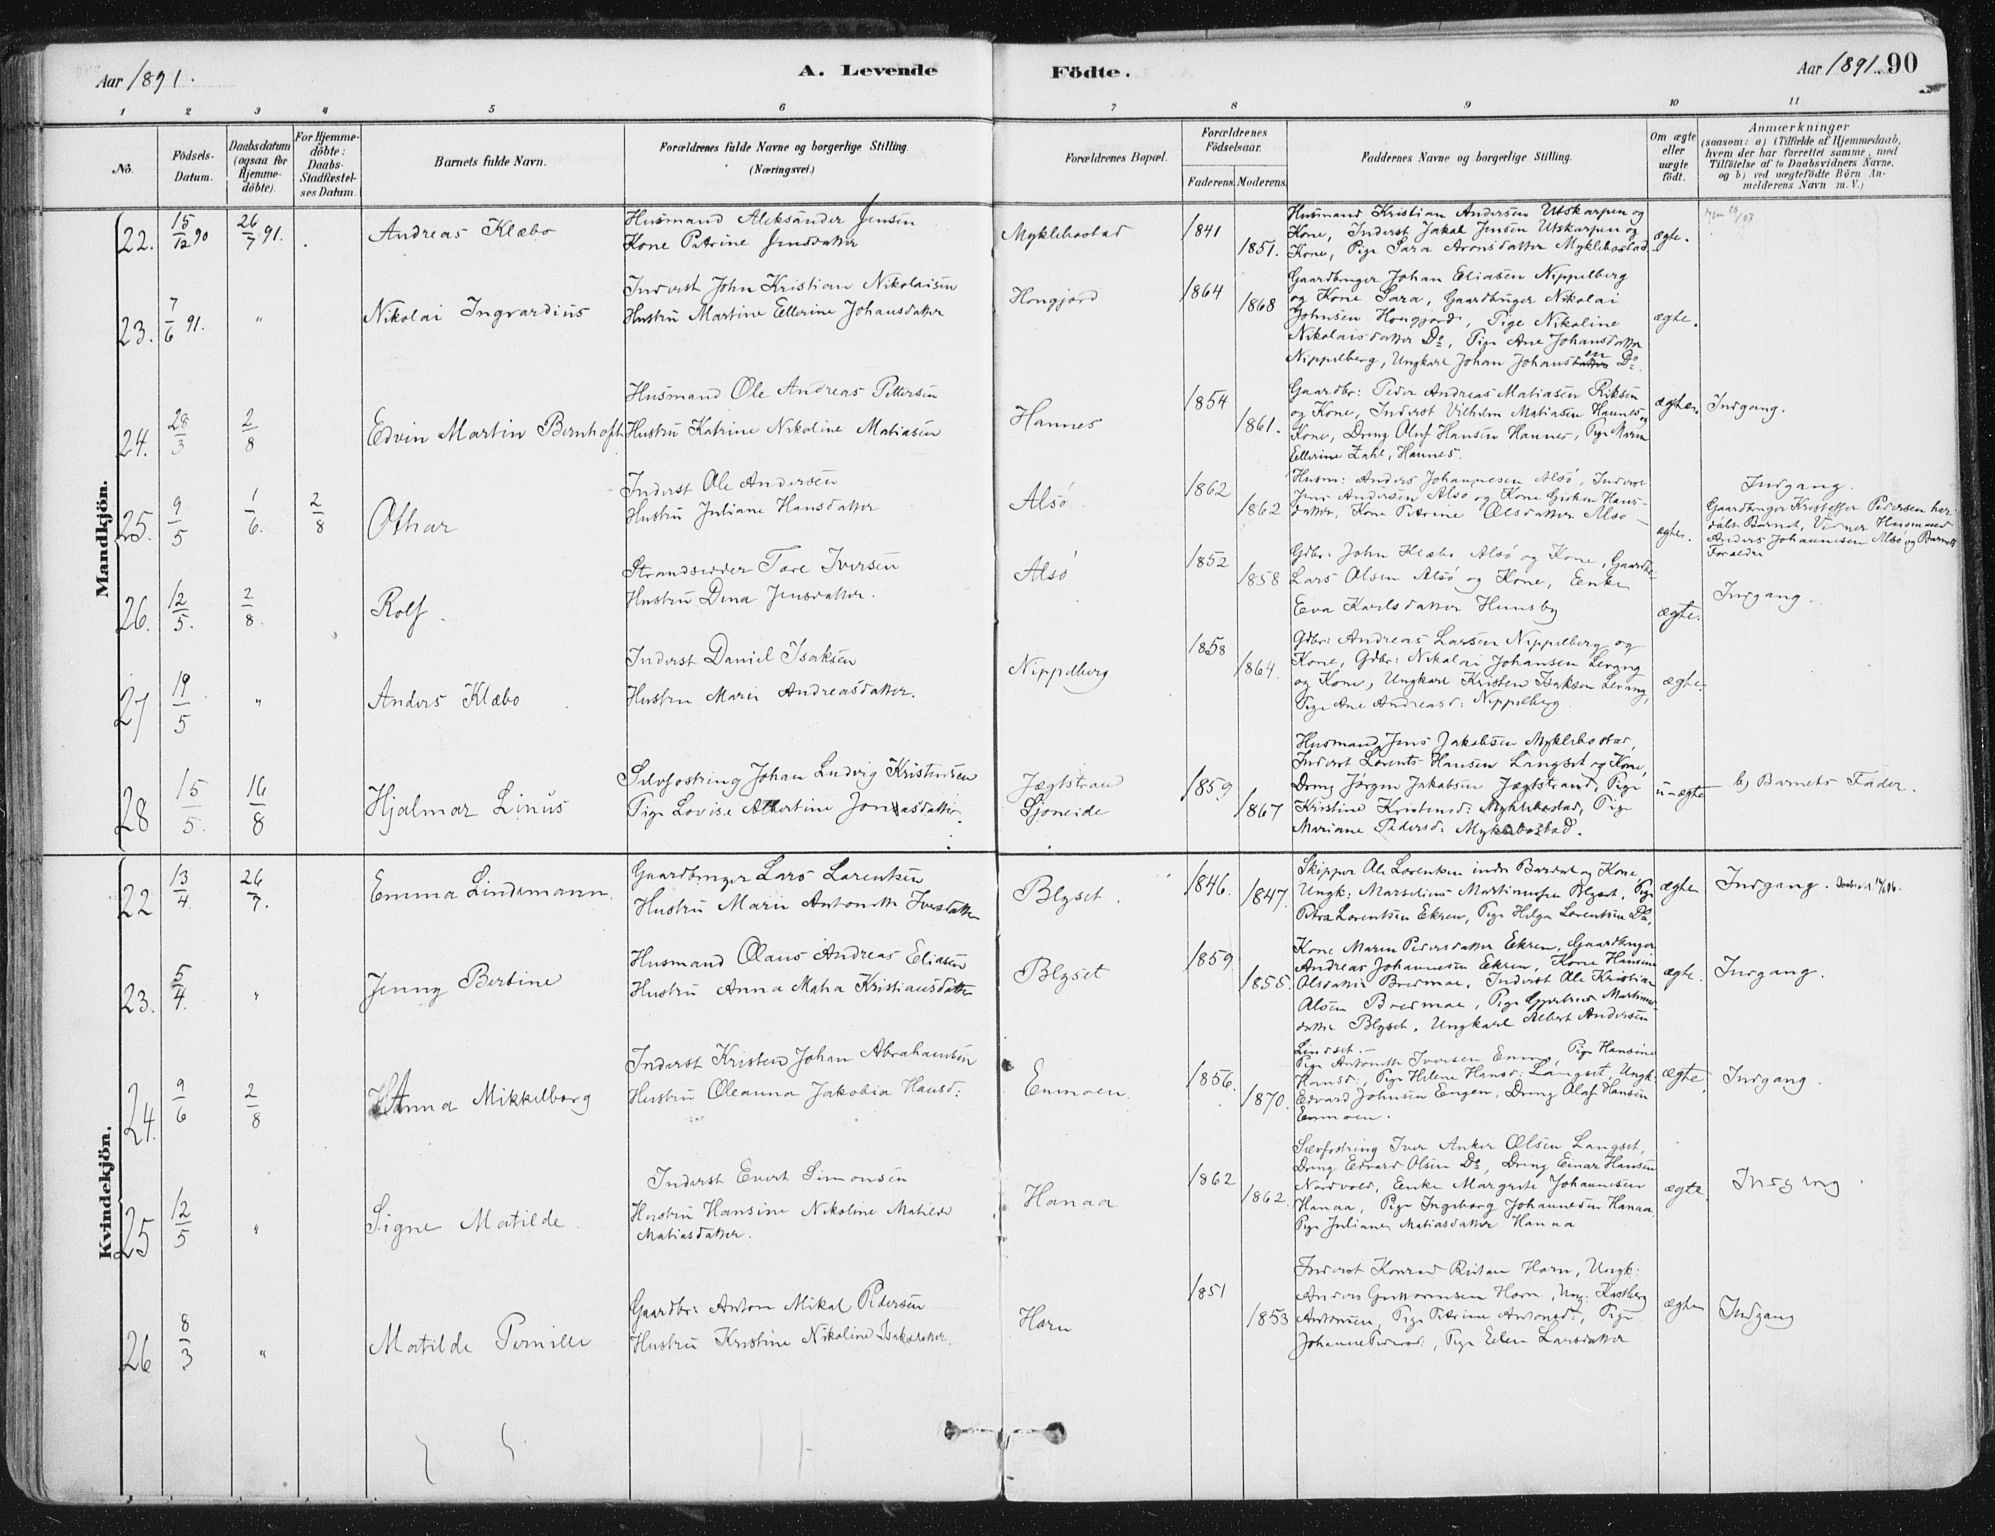 Aar 1891.
A. Levende Födte.
Aar 1891. 90
1 2 3 4 5 6 7 8 9 10 11
No.
Födsels-Datum.
Daabsdatum (ogsaa for Hjemme-döbte).
For Hjemme-döbte: Daabs-Stadfæstel-ses Datum.
Barnets fulde Navn.
Forældrenes fulde Navne og borgerlige Stilling. (Næringsvei.)
Forældrenes Bopæl.
Forældrenes Födselsaar.
Faderens. Moderens.
Faddernes Navne og borgerlige Stilling.
Om ægte eller uægte födt.
Anmærkninger
(saasom: a) i Tilfælde af Hjemmedaab,
hvem der har forrettet samme, med
Tilföielse af to Daabsvidners Navne,
og b) ved uægtefödte Börn An-
melderens Navn m. V.)
Mandkjön.
22. 15/12 90 26/7 91. Andreas Klæbo
Husmand Aleksander Jensen
Kone Petrine Jensdatter
Myklebostad 1841 1851.
Husmand Kristian Andersen Utskarpen og
Kone, Inderst Jakob Jensen Utskarpen og
Kone, Pige Sara Aronsdatter Myklebostad.
ægte.
23. 7/6 91. " Nikolai Ingvardius
Inderst John Kristian Nikolaisen
Hustru Martine Ellerine Johansdatter
Hongjord 1864 1868
Gaardbruger Johan Eliasen Nippelberg
og Kone Sara, Gaardbruger Nikolai
Johnsen Hongjord, Pige Nikoline
Nikolaisdatter Do, Pige Ane Johansdatter
Nippelberg, Ungkarl Johan Johansen Do.
ægte.
24. 28/3 2/8 Edvin Martin Bernhoft
Husmand Ole Andreas Pettersen
Hustru Katrine Nikoline Matiasen
Hannes 1854 1861.
Gaardbr: Peder Andreas Matiasen
og Kone, Inderst Vilhelm Matiasen Hannes og
Kone, Dreng Oluf Hansen Hannes, Pige Maren
Ellerine Zahl, Hannes.
ægte. Indgang.
25. 9/5 1/6. 2/8 Othar
Inderst Ole Andersen
Hustru Juliane Hansdatter
Alsö. 1862 1862
Husm: Anders Johannesen Alsö, Inderst
Jens Andersen Alsö og Kone Hans-
datter, Kone Petrine Olsdatter Alsö
ægte.
Indgang.
Gaardbruger Kristoffer Pedersen har
döbt Barnet, Vidner Husmand
Anders Johannesen Alsö og Barnets
Forældre
26. 12/5. 2/8. Rolf.
Strandsidder Tore Iversen
Hustru Dina Jensdatter.
Alsö 1852 1858
Gdbr: John Klæbo Alsö og Kone, Gaardbr.
Lars Olsen Alsö og Kone, Enke
Eva Karlsdatter Hunsby
ægte. Indgang.
27 19/5 " Anders Klæbo
Inderst Daniel Isaksen
Hustru Mari Andreasdatter.
Nippelberg 1858 1864.
Gdbr: Andreas Larsen Nippelberg og
Kone, Gdbr: Nikolai Johansen Levang
og Kone, Ungkarl Kristen Isaksen Levang,
Pige Ane Andreasd: Nippelberg.
ægte.
28 15/5. 16/8 Hjalmar Linus
Selvfostring Johan Ludvig Kristensen
Pige Lovise Albertine Jonasdatter.
Jægtstrand
Sjoneide 1859 1867
Husmand Jens Jakobsen Myklebostad,
Inderst Lorents Hansen Langset og Kone,
Dreng Jörgen Jakobsen Jægtstrand, Pige
Kristine Kristensd: Myklebostad, Pige
Mariane Pedersd: Myklebostad.
u-ægte b) Barnets Fader.
Kvindekjön.
22 13/4. 26/7. Emma Lindemann.
Gaardbruger Lars Lorentsen
Hustru Marie Antonette Iversdatter
Blyset. 1846. 1847.
Skipper Ole Lorentsen indre Bardal og Kone
Ungk: Marselius Martinussen Blyset, Pige
Petra Lorentsen Ekren, Pige Helga Lorentsen Do.
ægte Indgang.
23. 5/4. " Jenny Bertine
Husmand Olaus Andreas Eliasen
Hustru Anna Maria Kristiansdatter
Blyset 1859 1855.
Kone Maren Pedersdatter Ekren, Gaardbruger
Andreas Johannesen Ekren, Kone Hansine
Olsdatter Bredmoe, Inderst Ole Kristian
Olsen Bredmoe, Pige Martinus-
datter Blyset, Ungkarl Albert Andersen
Lindset.
ægte. Indgang.
24. 9/6 2/8 Anna Mikkelborg
Inderst Kristen Johan Abrahamsen
Hustru Oleanna Jakobia Hansd:
Enmoen. 1856. 1870.
Pige Antonette Iversen Enmo, Pige Hansine
Hansd:, Pige Helene Hansd: Langset, Ungk:
Edvard Johnsen Engen, Dreng Olaf Hansen
Enmoen.
ægte. Indgang.
25 12/5 " Signe Matilde.
Inderst Evert Simonsen
Hustru Hansine Nikoline Matilde
Matiasdatter.
Hanaa 1862 1862.
Selvfostring Iver Anker Olsen Langset,
Dreng Edvard Olsen Do, Dreng Einar Hansen
Nordvold, Enke Margrete Johannesen
Hanaa, Pige Ingeborg Johannesen Hanaa
Pige Juliane Matiasdatter Hanaa
ægte. Indgang.
26 8/3 " Matilde Pernille
Gaardbr: Anton Mikal Pedersen
Hustru Kristine Nikoline Isaksdatter.
Horn 1851 1853
Inderst Konrad Horn, Ungk:
Anders Guttormsen Horn, Ung:
Antonsen, Pige Petrine Antonsd:, Pige
Johanne Pedersd:, Pige Ellen Larsdatter
ægte Indgang